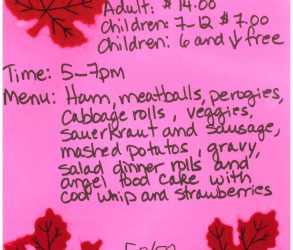 Adult: $14.00
Children: 7-12 $7.00
Children: 6 and ↓ free
Time: 5-7pm
Menu: Ham, meatballs, perogies,
cabbage rolls, veggies,
sauerkraut and sausage,
mashed potatos, gravy,
salad dinner rolls and
angel food cake with
cool whip and strawberries